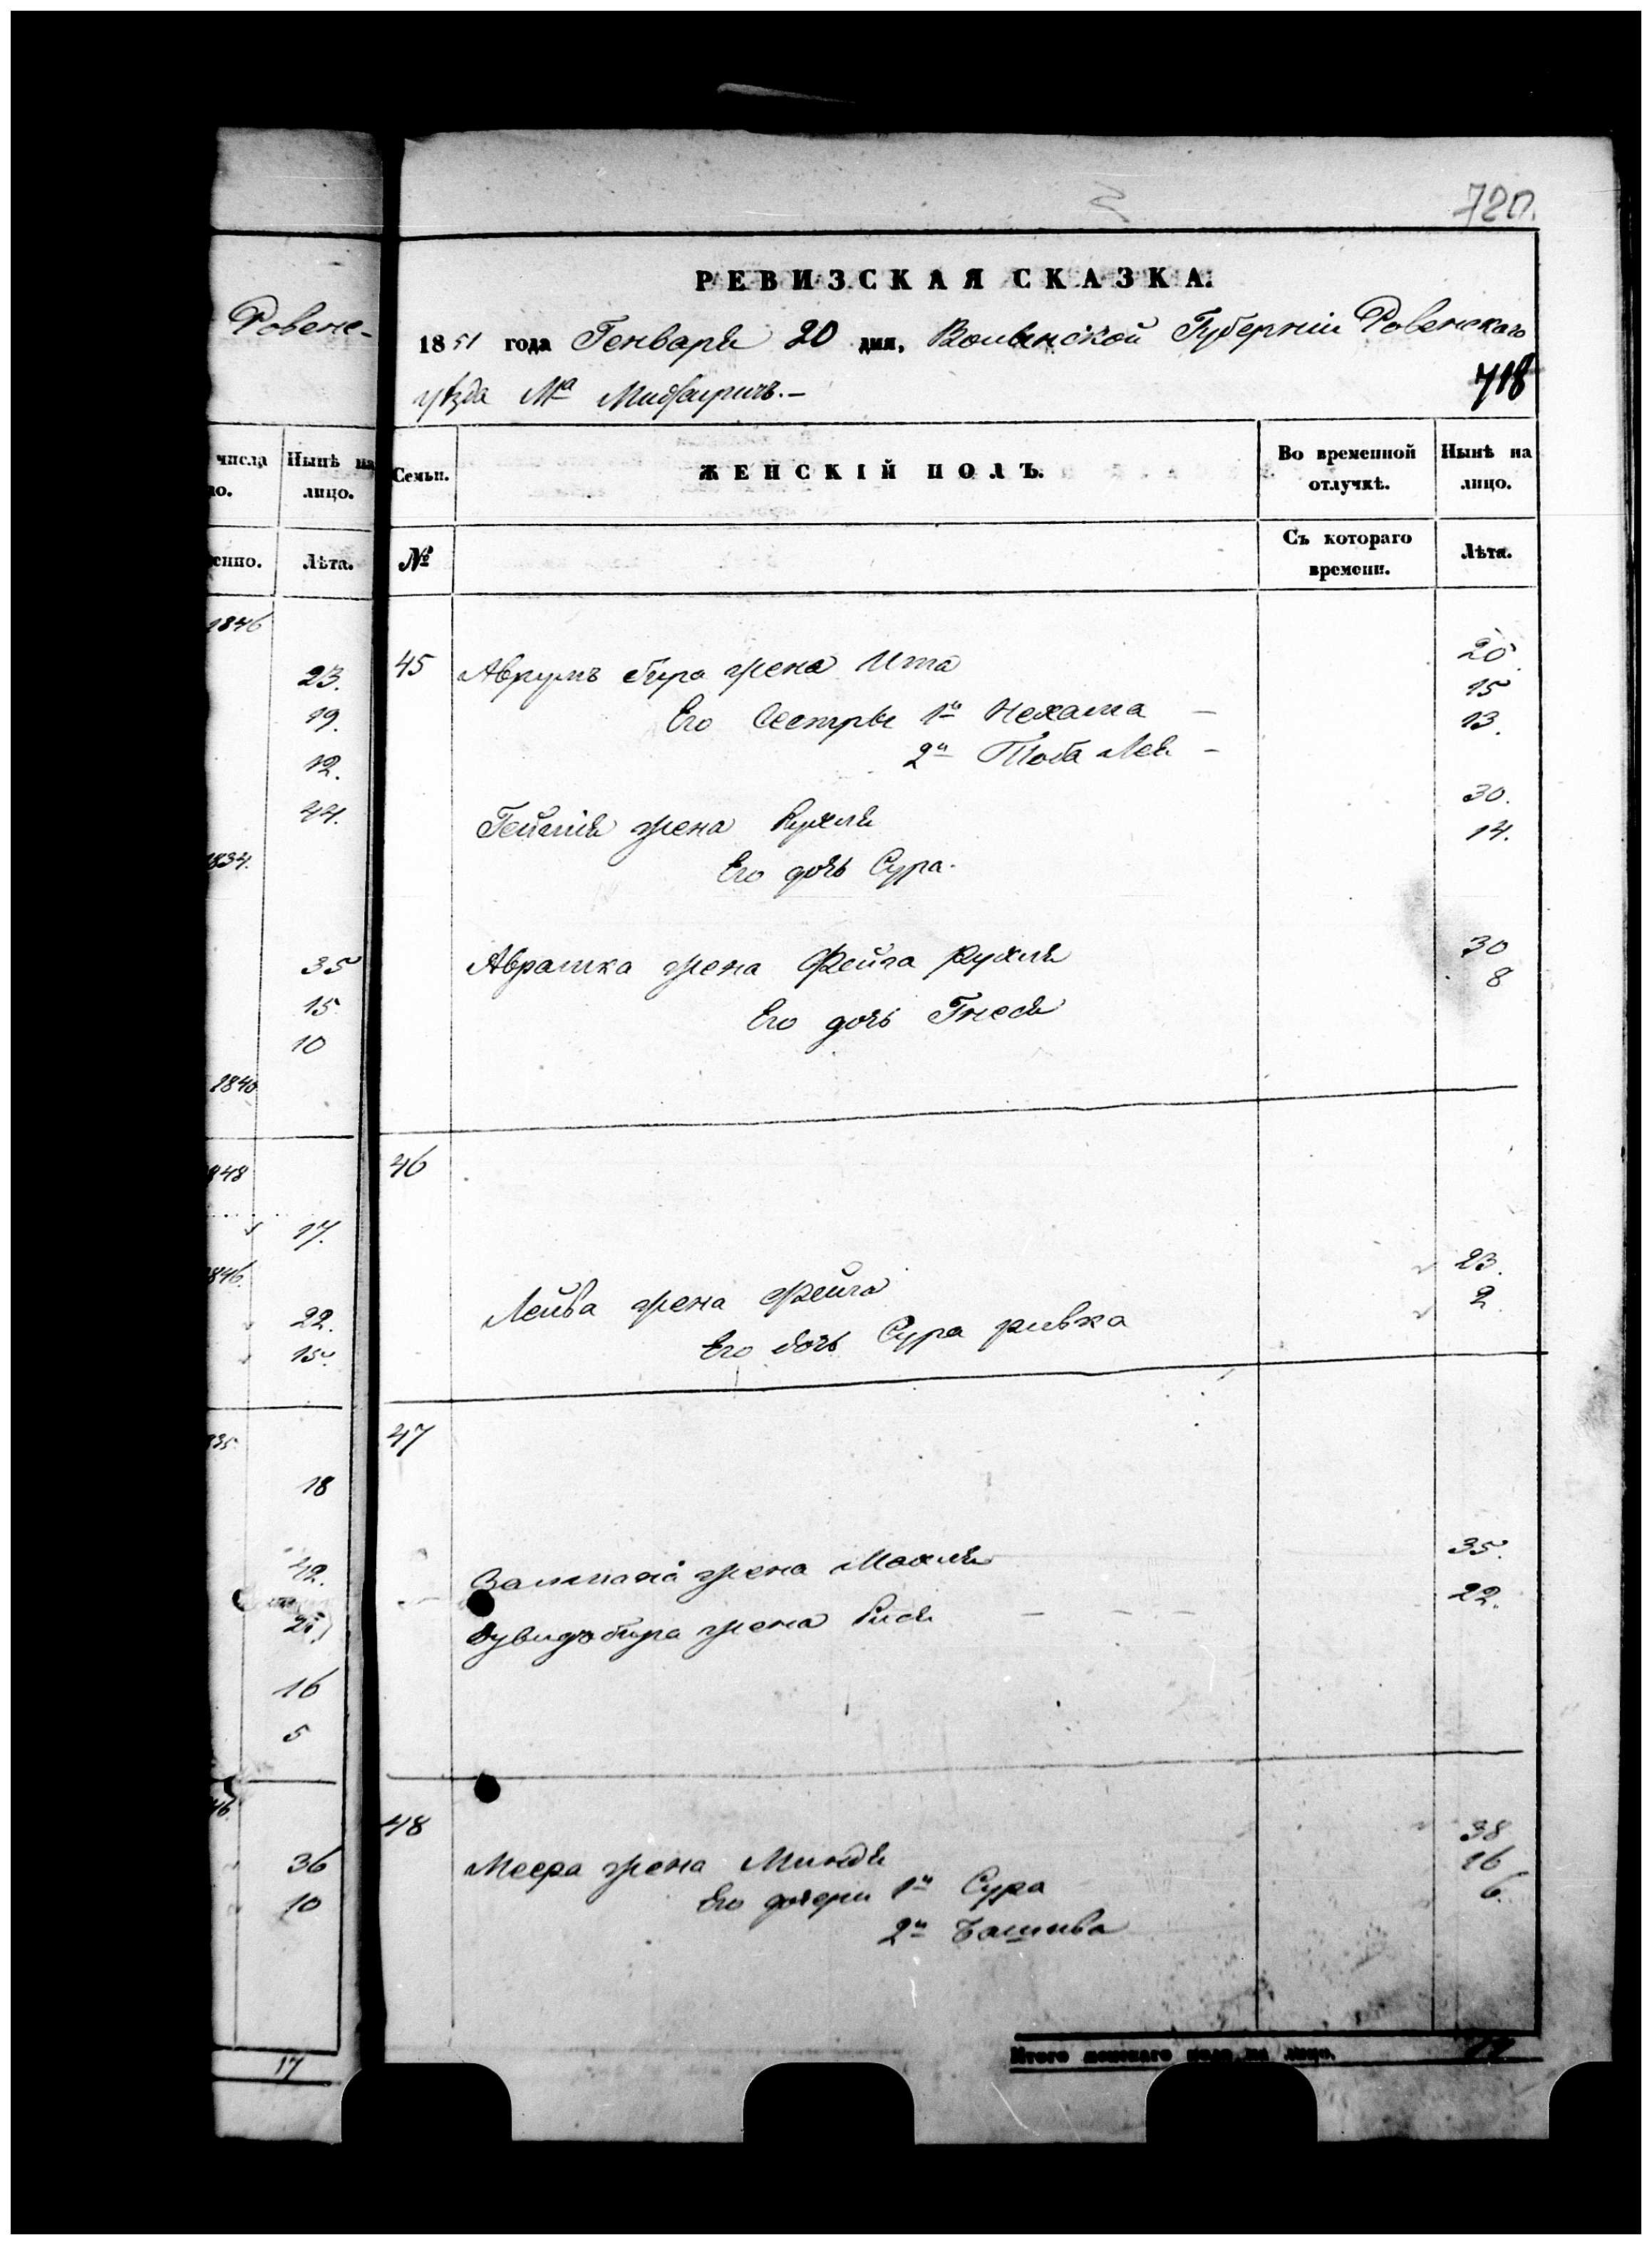 720.
РЕВИЗСКАЯ СКАЗКА.
Ровенс-
1851 года Генваря 20 дня, Волынской Губерніи Ровенскаго
уѣзда Мᵃ Мидзиричъ.-
718
числа
Нынѣ на лицо.
Семьи.
ЖЕНСКІЙ ПОЛЪ.
Во временной отлучкѣ.
Нынѣ на лицо.
Лѣта.
№
Съ котораго времени.
Лѣта.
1846
23.
19.
12.
44.
1834.
35
15
10
1840
1848
17.
1846.
22.
15.
18
42.
16
5
36
10
17
45 Аврумъ бера жена Ита 20
Его Сестры 1ᵃ Нехама - 15
2ᵃ Тоба Лея - 13.
жена Рухля 30.
Его дочь Сура. 14.
Аврамка жена Фейга Рухля 30
Его дочь Гнеся 8
46
Лейба жена Фейга 23.
Его дочь Сура ривка 2.
47
жена Махля 35.
Дувидъ бера жена Рися - - - 22.
48
Меера жена Миндя 38
Его дочери 1ᵃ Сура 16
2ᵃ Башива 6.
Итого женскаго пола на лицо.